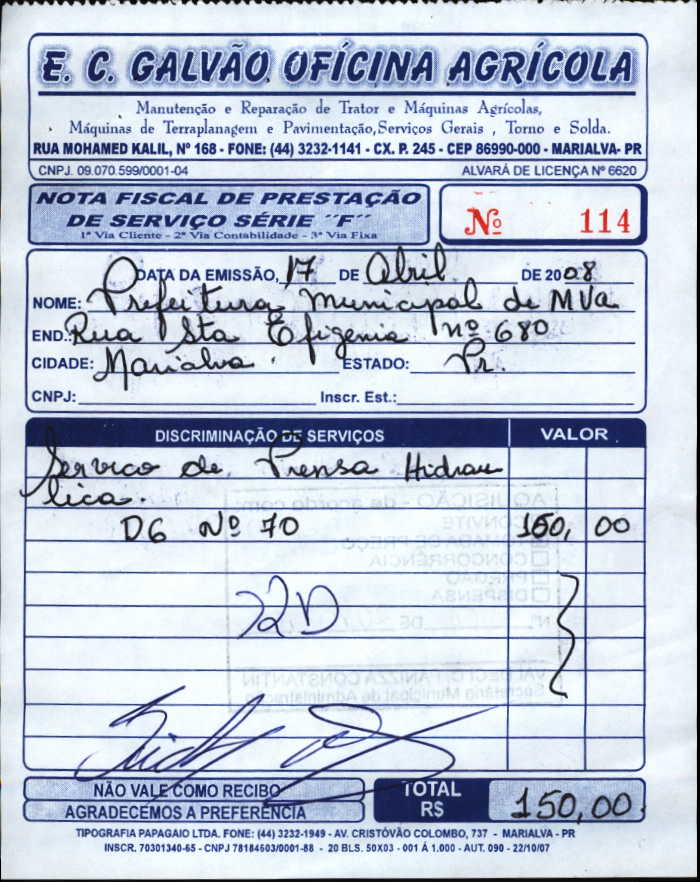 E. C. GALVÃO OFÍCINA AGRÍCOLA
Manutenção e Reparação de Trator e Máquinas Agrícolas,
Máquinas de Terraplanagem e Pavimentação,Serviços Gerais , Torno e Solda.
RUA MOHAMED KALIL, Nº 168 - FONE: (44) 3232-1141 - CX. P. 245 - CEP 86990-000 - MARIALVA- PR
CNPJ. 09.070.599/0001-04 ALVARÁ DE LICENÇA Nº 6620
NOTA FISCAL DE PRESTAÇÃO
DE SERVIÇO SÉRIE ´´F´´
1ª Via Cliente - 2ª Via Contabilidade - 3ª Via Fixa
Nº 114
DATA DA EMISSÃO, 17 DE Abril DE 2008
NOME: Prefeitura municipal de MVa
END.: Rua Sta Efigenia nº 680
CIDADE: Marialva. ESTADO: Pr.
CNPJ: Inscr. Est.:
DISCRIMINAÇÃO DE SERVIÇOS VALOR
Servico de Prensa Hidrau
lica.
D6 Nº 70 150, 00
AQUISIÇÃO - de acordo com:
CONVITE
TOMADA DE PREÇO
CONCORRÊNCIA
PREGÃO
DISPENSA
Nº DE
VALDECIR FANIZZA CONSTANTIN
Secretário Municipal de Administração
22D
NÃO VALE COMO RECIBO
AGRADECEMOS A PREFERÊNCIA
TOTAL
R$ 150,00.
TIPOGRAFIA PAPAGAIO LTDA. FONE: (44) 3232-1949 - AV. CRISTÓVÃO COLOMBO, 737 - MARIALVA - PR
INSCR. 70301340-65 - CNPJ 78184603/0001-88 - 20 BLS. 50X03 - 001 Á 1.000 - AUT. 090 - 22/10/07